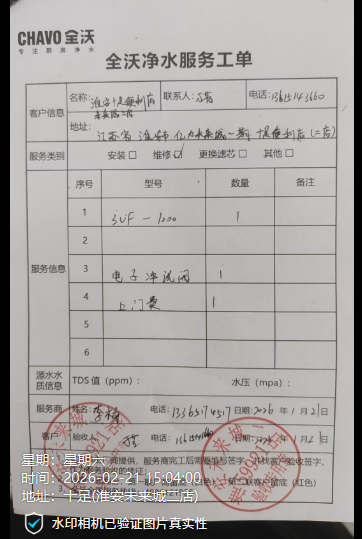 CHAVO 全沃
专注厨房净水
全沃净水服务工单
客户信息
名称：淮安十足便利店
未来城二店
联系人：
电话：
地址：江苏省 淮安市 亿力未来城一期 十足便利店（二店）
服务类别
安装 □ 维修 ☑ 更换滤芯 □ 其他 □
服务信息
序号 型号 数量 备注
1 3UF-1000 1
2
3 电子冲洗阀 1
4 上门费 1
5
6
源水水质信息
TDS 值（ppm）： 水压（mpa）：
服务商
姓名： 电话：13365174517 日期：2026年1月21日
客户
验收人： 电话： 日期：2026年1月21
星期：星期六
时间：2026-02-21 15:04:00
地址：十足(淮安未来城二店)
水印相机已验证图片真实性